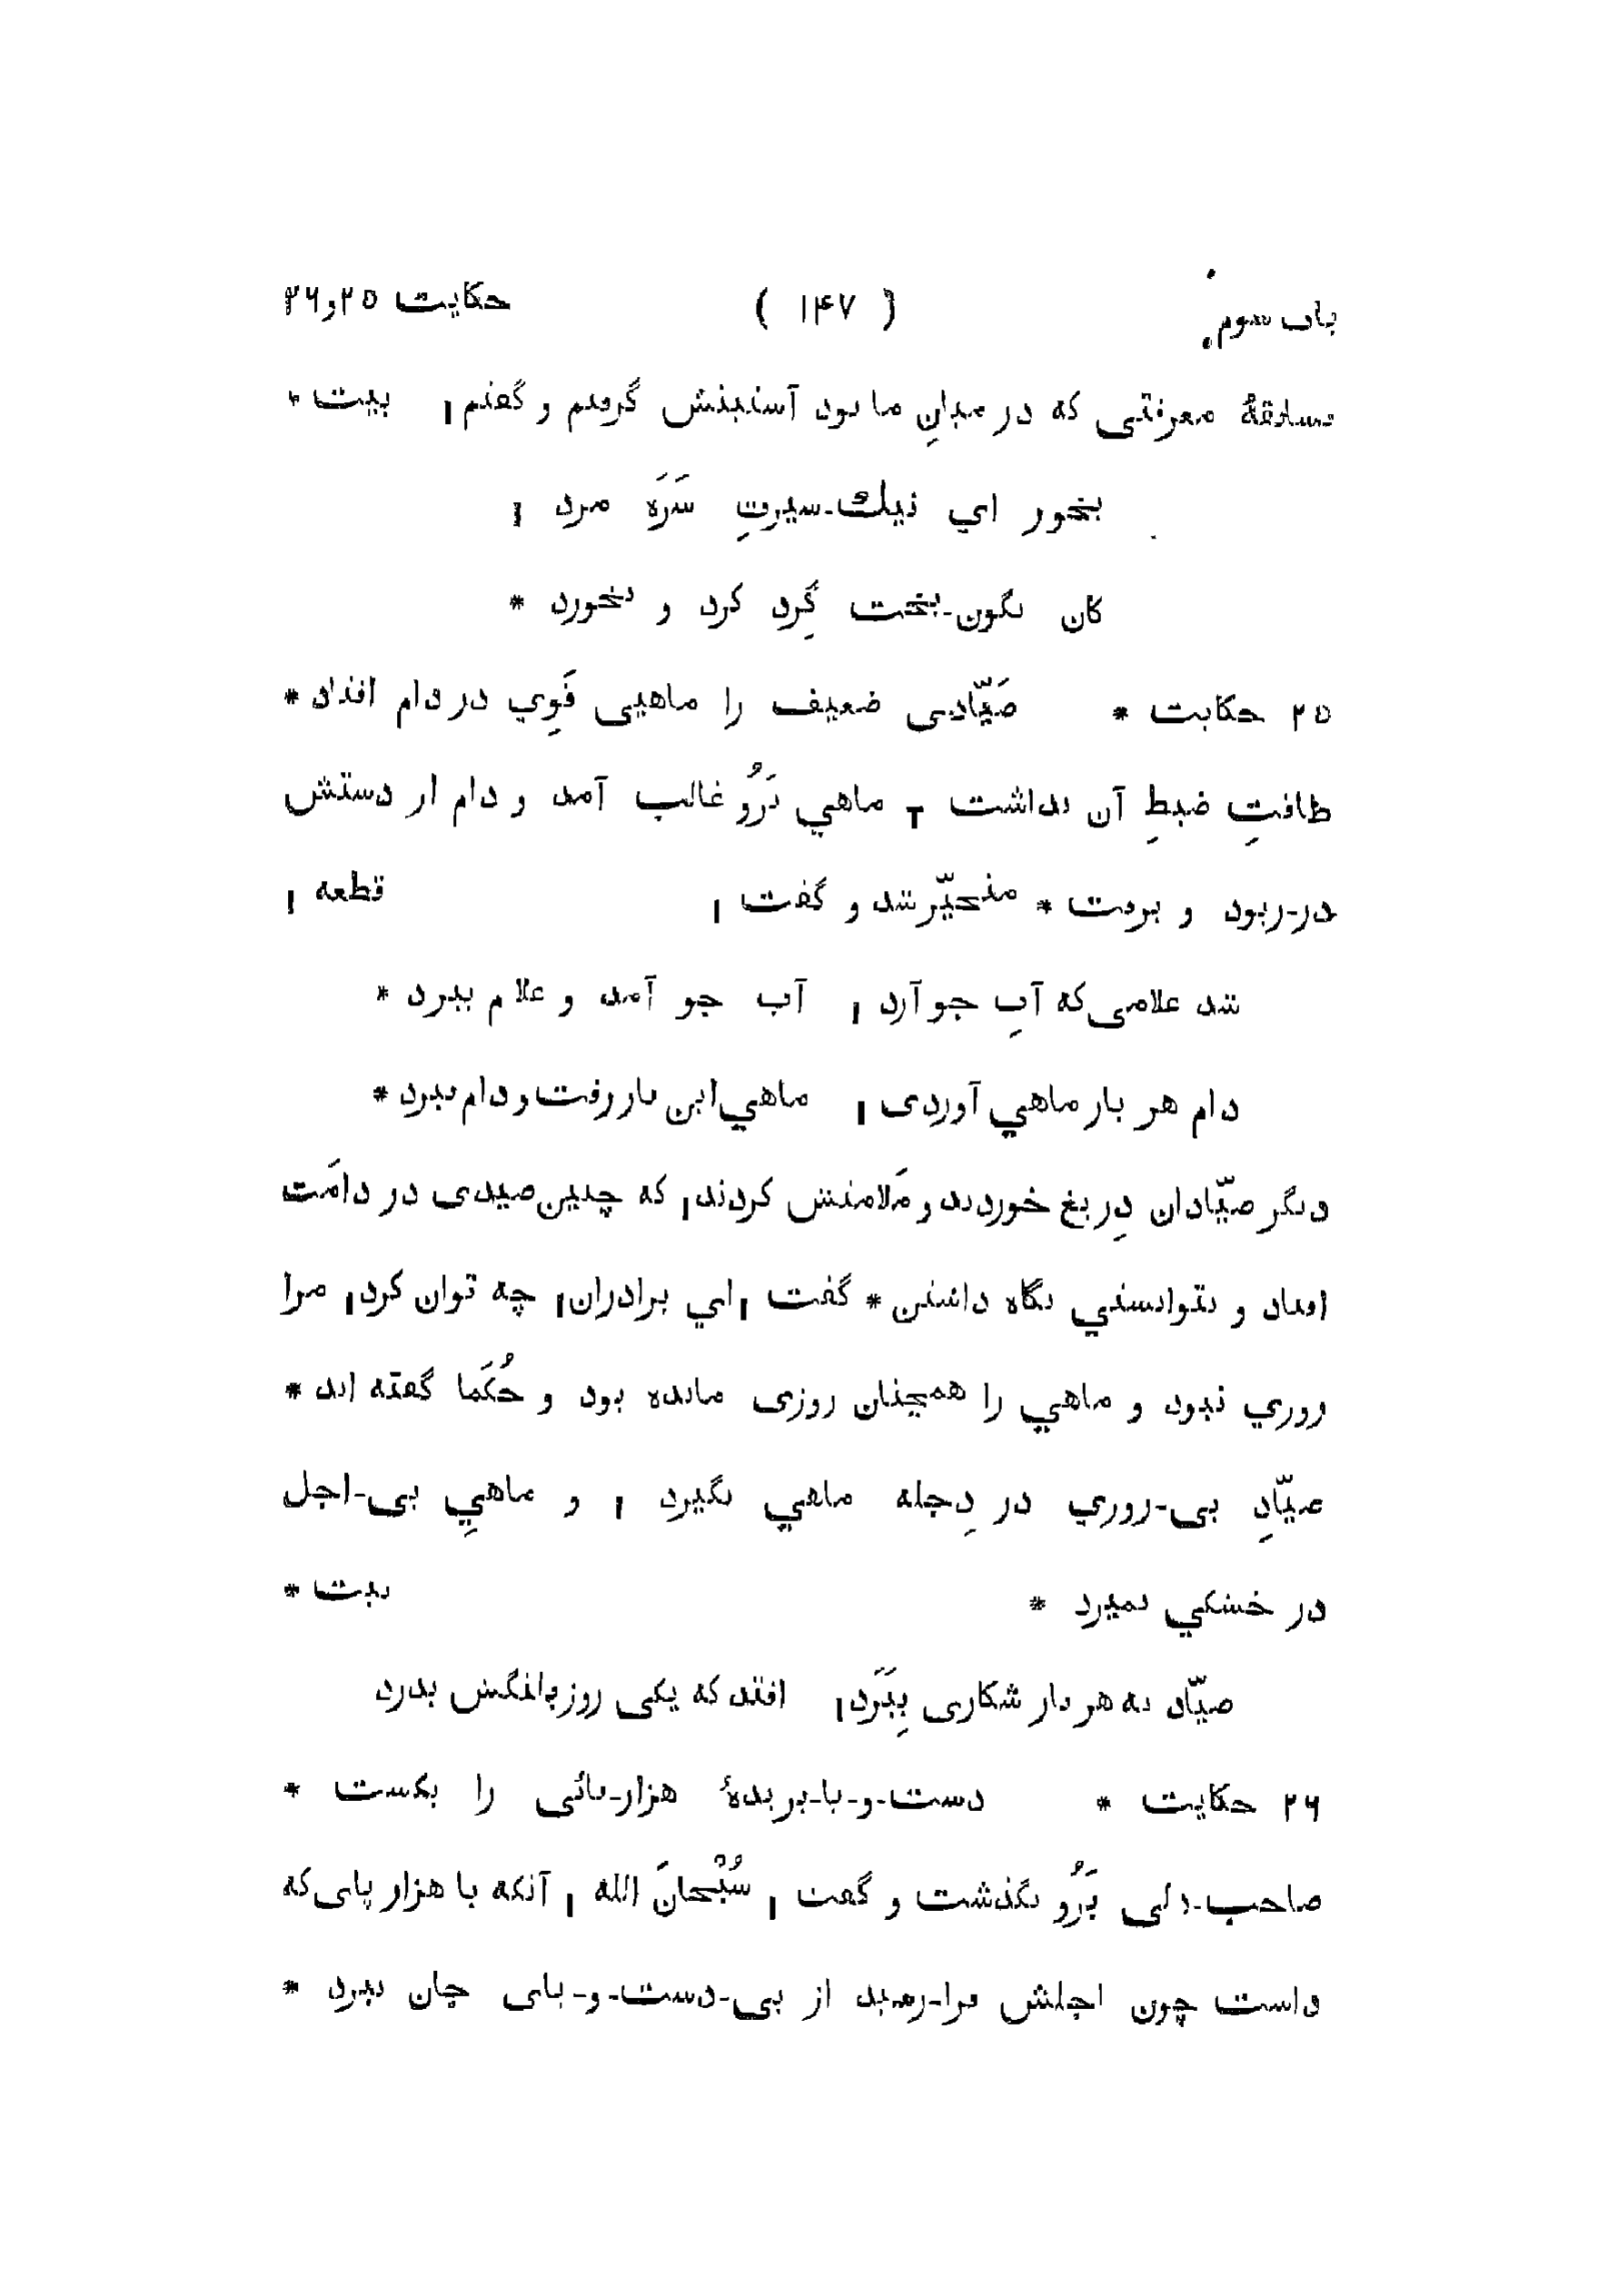 باب سوم ( ۱۴۷ ) حکایت ۲۵ و ۲۶
بسابقهٔ معرفتی که در میانِ ما بود آستینش گرفتم و گفتم | بیت *
بخور اي نیك-سیرتِ سَرَه مرد |
کان نگون-بخت گِرد کرد و نخورد *
۲۵ حکایت * صَیّادی ضعیف را ماهیی قَوِي در دام افتاد *
طاقتِ ضبطِ آن نداشت ┬ ماهي بَرُو غالب آمد و دام از دستش
در-ربود و برفت * متحیّر شد و گفت | قطعه |
شد غلامی که آبِ جو آرد | آب جو آمد و غلام ببرد *
دام هر بار ماهي آوردی | ماهي این بار رفت و دام ببرد *
دیگر صیّادان دِریغ خوردند و مَلامتش کردند | که چنین صیدی در دامَت
افتاد و نتوانستي نگاه داشتن * گفت | اي برادران | چه توان کرد | مرا
روزي نبود و ماهي را همچنان روزی مانده بود و حُکَما گفته اند *
صیّادِ بی-روزي در دِجله ماهي نگیرد | و ماهيِ بی-اجل
در خشکي نمیرد * بیت *
صیّاد نه هر بار شکاری بِبَرَد | افتد که یکی روز پلنگش بدرد
۲۶ حکایت * دست-و-پا-بریدهٔ هزار-پائی را بکشت *
صاحب-دلی بَرُو بگذشت و گفت | سُبْحانَ الله | آنکه با هزار پای که
داست چون اجلش فرا-رسید از بی-دست-و-پای جان نبرد *